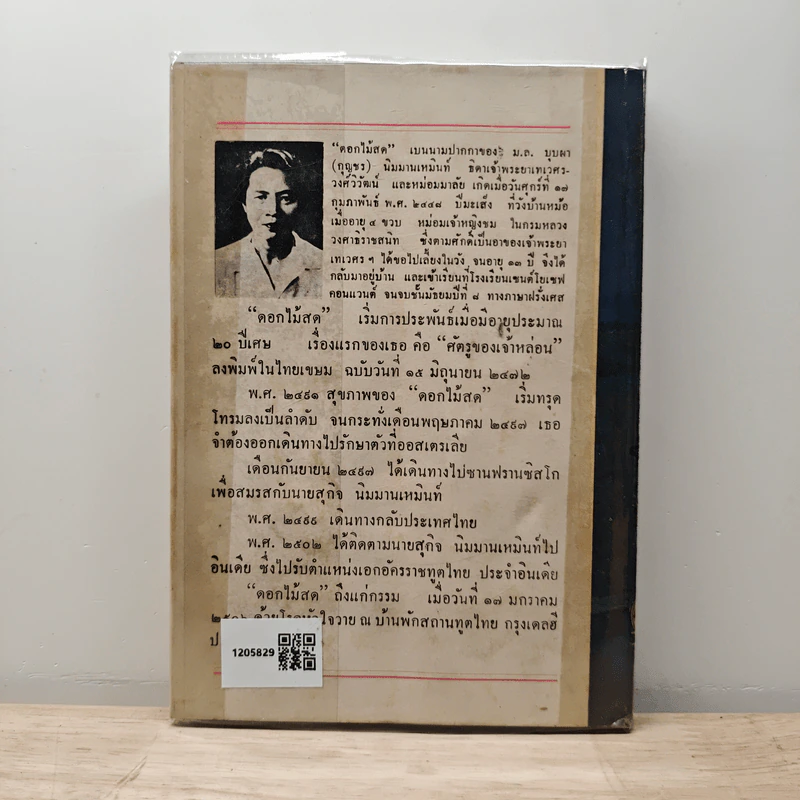 “ดอกไม้สด” เป็นนามปากกาของ ม.ล. บุบผา
(กุญชร) นิมมานเหมินท์ ธิดาเจ้าพระยาเทเวศร-
วงศ์วิวัฒน์ และหม่อมมาลัย เกิดเมื่อวันศุกร์ที่ ๑๗
กุมภาพันธ์ พ.ศ. ๒๔๔๘ ปีมะเส็ง ที่วังบ้านหม้อ
เมื่ออายุ ๔ ขวบ หม่อมเจ้าหญิงชม ในกรมหลวง
วงศาธิราชสนิท ซึ่งตามศักดิ์เป็นอาของเจ้าพระยา
เทเวศร ฯ ได้ขอไปเลี้ยงในวัง จนอายุ ๑๓ ปี จึงได้
กลับมาอยู่บ้าน และเข้าเรียนที่โรงเรียนเซนต์โยเซฟ
คอนแวนต์ จนจบชั้นมัธยมปีที่ ๘ ทางภาษาฝรั่งเศส
“ดอกไม้สด” เริ่มการประพันธ์เมื่อมีอายุประมาณ
๒๐ ปีเศษ เรื่องแรกของเธอ คือ “ศัตรูของเจ้าหล่อน”
ลงพิมพ์ในไทยเขษม ฉบับวันที่ ๑๕ มิถุนายน ๒๔๗๒
พ.ศ. ๒๔๙๑ สุขภาพของ “ดอกไม้สด” เริ่มทรุด
โทรมลงเป็นลำดับ จนกระทั่งเดือนพฤษภาคม ๒๔๙๗ เธอ
จำต้องออกเดินทางไปรักษาตัวที่ออสเตรเลีย
เดือนกันยายน ๒๔๙๗ ได้เดินทางไปซานฟรานซิสโก
เพื่อสมรสกับนายสุกิจ นิมมานเหมินท์
พ.ศ. ๒๔๙๙ เดินทางกลับประเทศไทย
พ.ศ. ๒๕๐๒ ได้ติดตามนายสุกิจ นิมมานเหมินท์ไป
อินเดีย ซึ่งไปรับตำแหน่งเอกอัครราชทูตไทย ประจำอินเดีย
“ดอกไม้สด” ถึงแก่กรรม เมื่อวันที่ ๑๗ มกราคม
ด้วยโรคหัวใจวาย ณ บ้านพักสถานทูตไทย กรุงเดลฮี
1205829